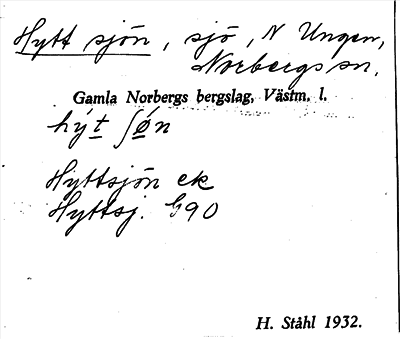 Hyttsjön, sjö, N Ungen,
Norbergs sn.
Gamla Norbergs bergslag, Västm. l.
hýt ʃøn
Hyttsjön ek
Hyttsj. G90
H. Ståhl 1932.